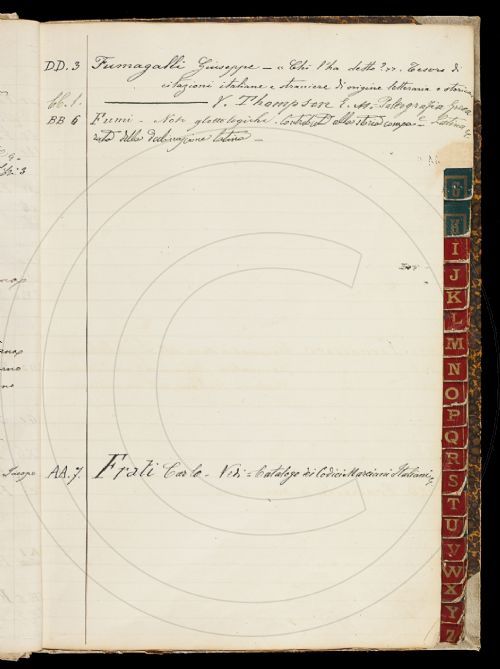 DD. 3 Fumagalli Giuseppe – « Chi l'ha detto? ». Tesoro di
citazioni italiane e straniere di origine letteraria e storica
V. Thompson E. M. Paleografia Greca
e Latina
BB 6 Fumi – Note glottologiche. Contributi alla storia compa-
rata della declinazione latina –
AA. 7. Frati Carlo – Vedi = Catalogo dei Codici Marciani Italiani
Jacopo
I
J
K
L
M
N
O
P
Q
R
S
T
U
V
W
X
Y
Z